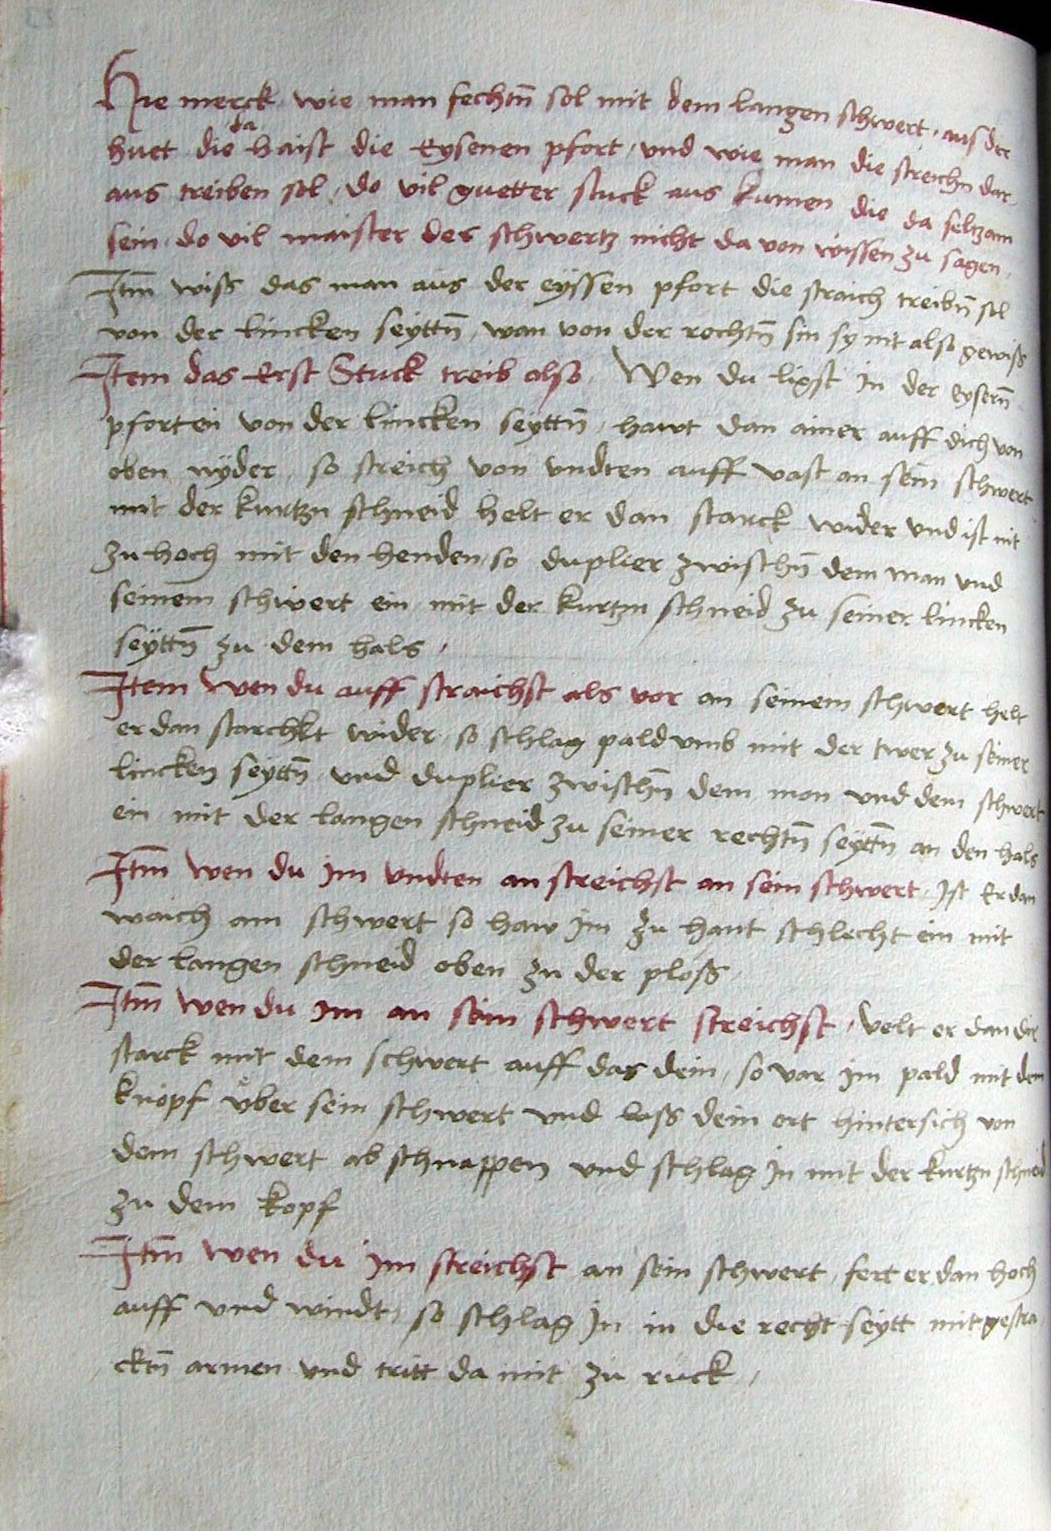 Hie merck wie man fechtn̄ sol mit dem langen schwert · aus der
huet die da haist die Eysenen pfort · vnd wie man die streichn dar
aus treiben sol · do vil guetter stuck aus kumen die da seltzam
sein · do vil maister der schwertz nicht da von wissen zu sagen ·
Itm̄ wiss das man aus der eyssen pfort die straich treibn̄ sol
von der lincken seyttn̄ · wan von der rechtn̄ sin sy nit also gewiss
Item das Erst Stuck treib also · Wen du ligst in der eysern̄
pforten von der lincken seyttn̄ · hawt dan ainer auff dich von
oben nÿder · so streich von vndten auff vast an sein schwert
mit der kurtzn schneid helt er dan starck wider vnd ist nit
zu hoch mit den henden · so duplier zwischn̄ dem man vnd
seinem schwert ein mit der kurtzn schneid zu seiner lincken
seÿttn̄ zu dem hals ·
Item Wen du auff straichst als vor an seinem schwert helt
er dan starchkt wider · so schlag pald vmb mit der twer zu seiner
lincken seyttn̄ vnd duplier zwischn̄ dem man vnd dem schwert
ein mit der langen schneid zu seiner rechtn̄ seyttn̄ an den hals
Itm̄ wen du im vndten an streichst an sein schwert · Ist Er dan
waich am schwert so haw im zu hant schlecht ein mit
der langen schneid oben zu der ploss
Itm̄ wen du im an sein schwert streichst · velt er dan dir
starck mit dem schwert auff das dein · so var im pald mit dem
knopf vber sein schwert vnd lass dein ort hintersich von
dem schwert ab schnappen vnd schlag in mit der kurtzn schneid
zu dem kopf
Itm̄ wen du im streichst an sein schwert · fert er dan hoch
auff vnd windt · so schlag in in die recht seytt mit gestra
cktn̄ armen vnd tritt da mit zu ruck ·